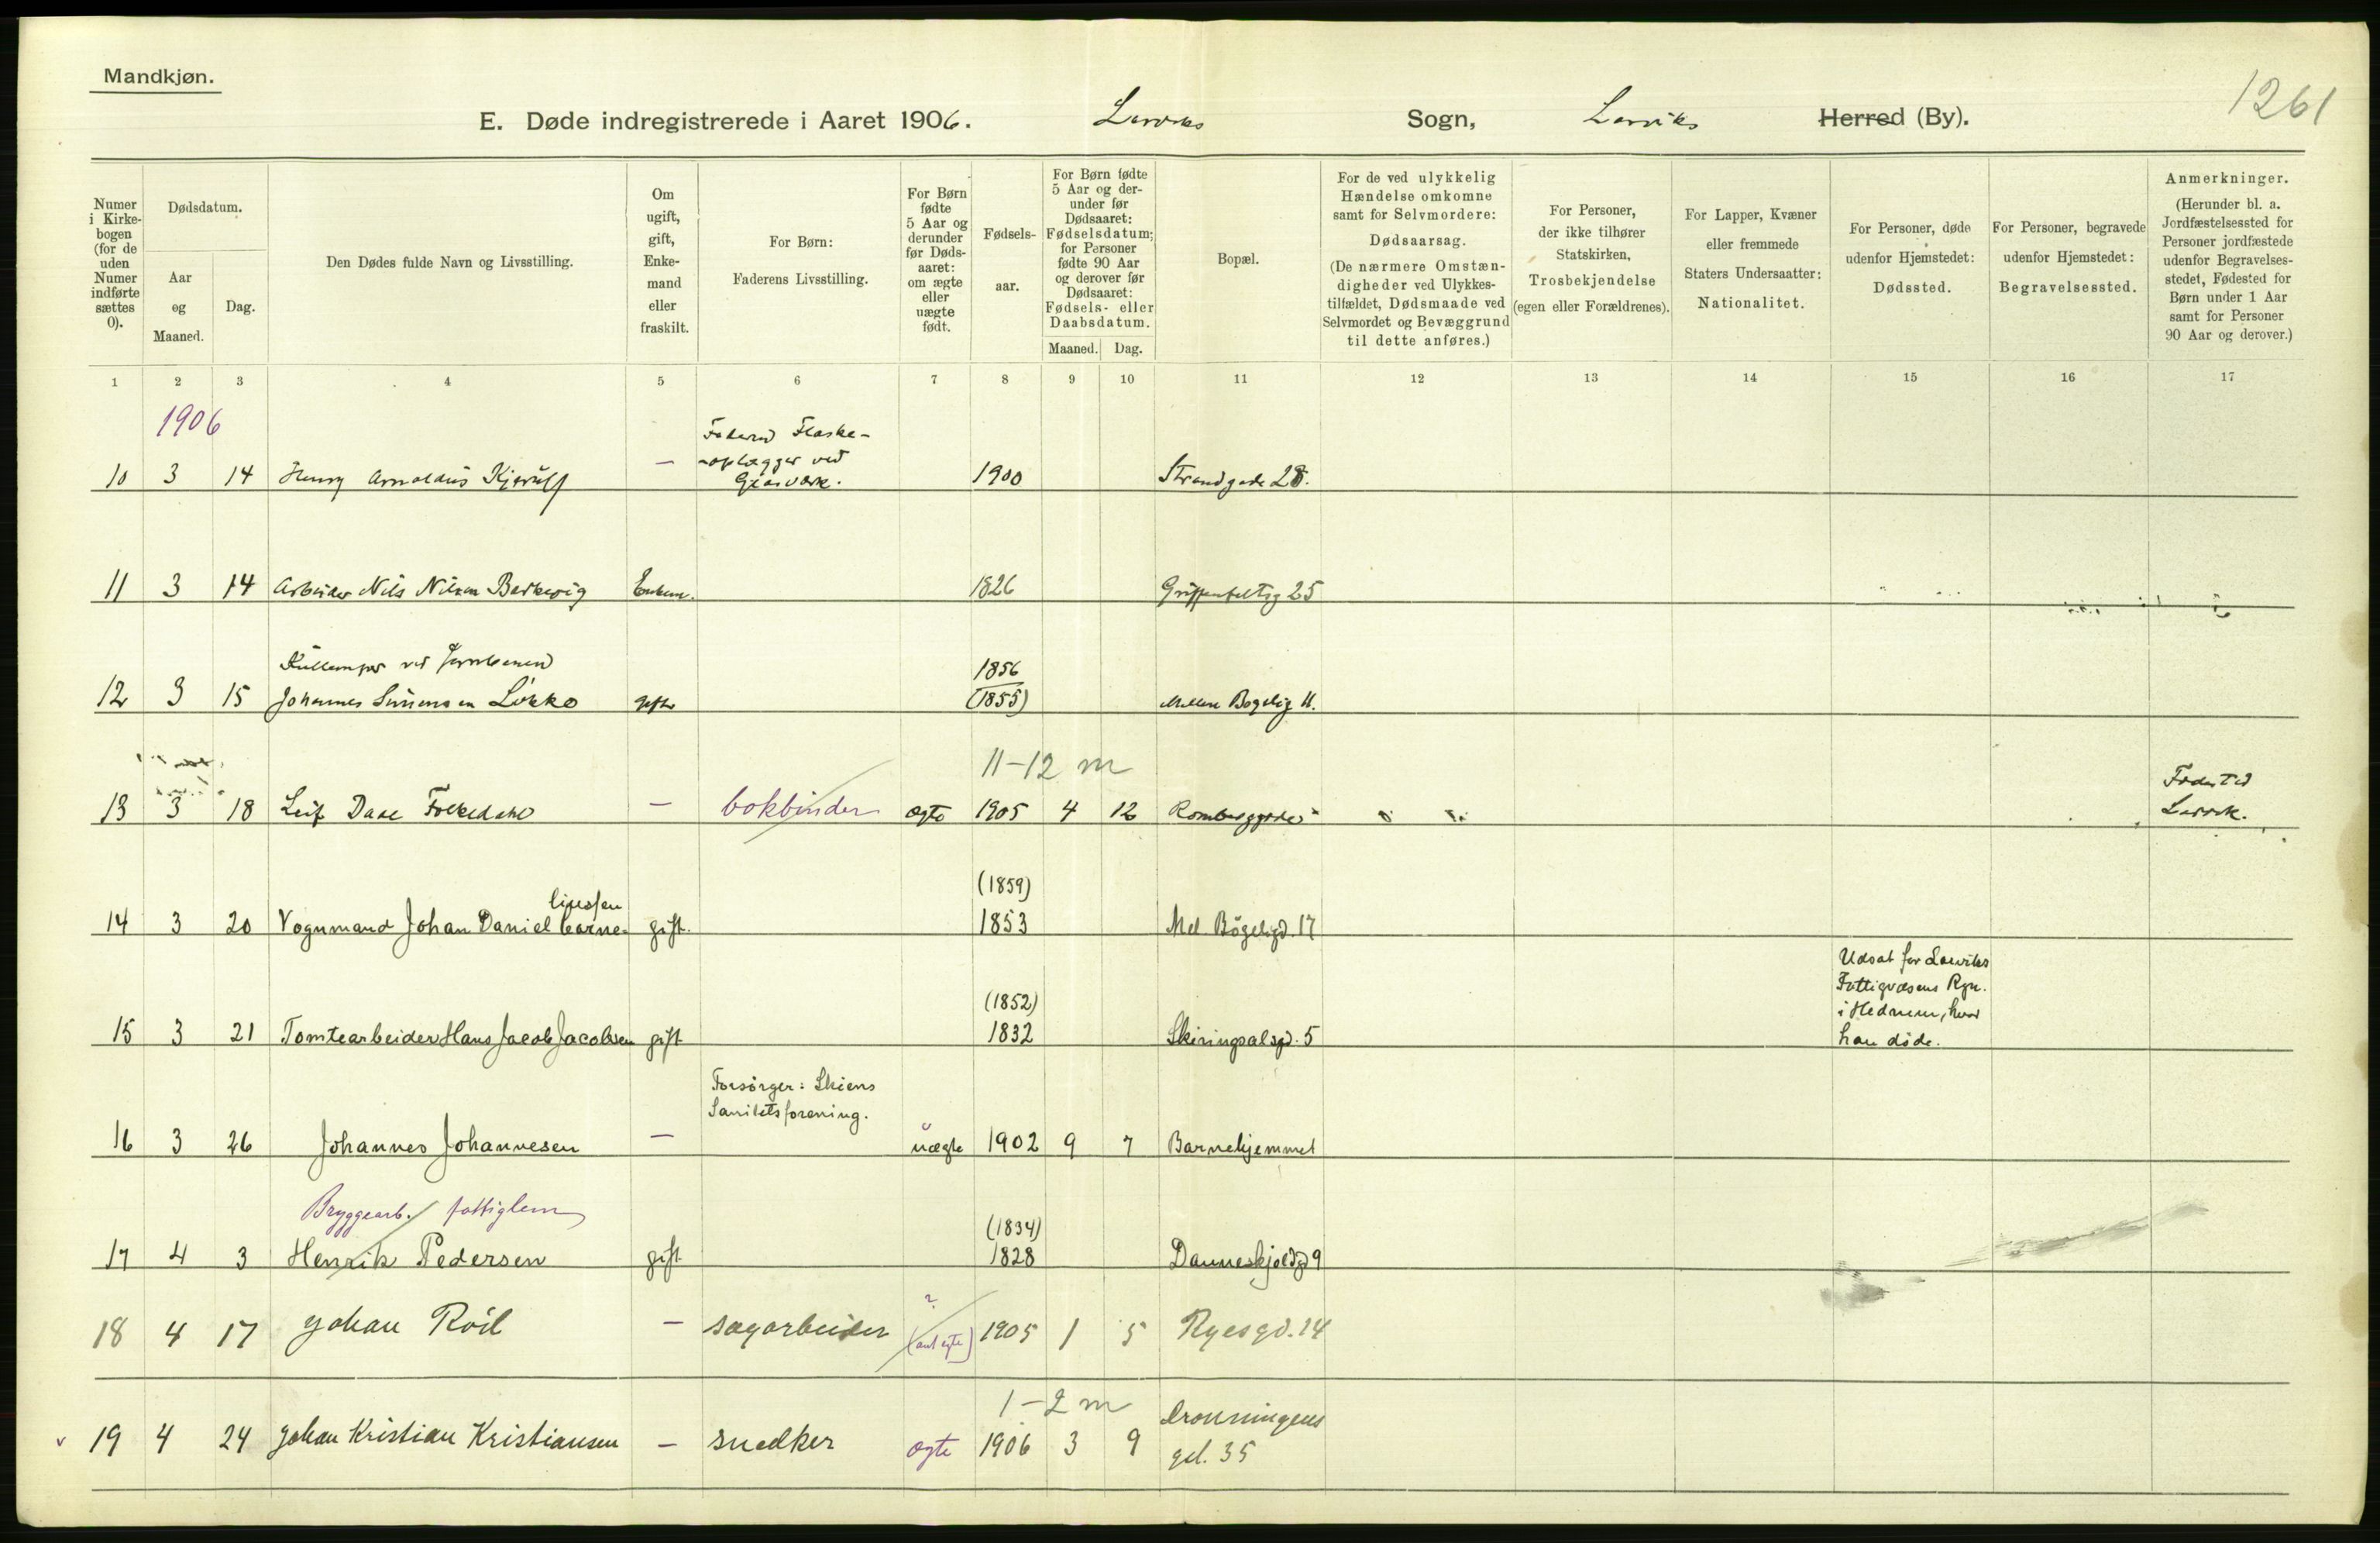 Mandkjøn.
1261
E. Døde indregistrerede i Aaret 1906. Larviks Sogn, Larviks Herred (By).
Numer i Kirkebogen (for de uden Numer indførte sættes 0).
Dødsdatum.
Aar og Maaned.
Dag.
Den Dødes fulde Navn og Livsstilling.
Om ugift, gift, Enkemand eller fraskilt.
For Børn: Faderens Livsstilling.
For Børn fødte 5 Aar og derunder før Dødsaaret: om ægte eller uægte født.
Fødselsaar.
For Børn fødte 5 Aar og derunder før Dødsaaret: Fødselsdatum; for Personer fødte 90 Aar og derover før Dødsaaret: Fødsels- eller Daabsdatum.
Maaned. Dag.
Bopæl.
For de ved ulykkelig Hændelse omkomne samt for Selvmordere: Dødsaarsag. (De nærmere Omstændigheder ved Ulykkestilfældet, Dødsmaade ved Selvmordet og Bevæggrund til dette anføres.)
For Personer, der ikke tilhører Statskirken, Trosbekjendelse (egen eller Forældrenes).
For Lapper, Kvæner eller fremmede Staters Undersaatter: Nationalitet.
For Personer, døde udenfor Hjemstedet: Dødssted.
For Personer, begravede udenfor Hjemstedet: Begravelsessted.
Anmerkninger. (Herunder bl. a. Jordfæstelsessted for Personer jordfæstede udenfor Begravelsesstedet, Fødested for Børn under 1 Aar samt for Personer 90 Aar og derover.)
1 2 3 4 5 6 7 8 9 10 11 12 13 14 15 16 17
1906
Flaske-
oplægger ved
10 3 14 Henry Arnoldus Kjerulf — Glasværk. 1900 Strandgade 28.
11 3 14 Arbeider Nils Nilsen Berkevig Enkem. 1826 Griffenfeltsg 25
ved Jernbanen 1856
12 3 15 Johannes Simonsen Løkke gift (1855) Mellem Bøgelig 11.
11-12 m
Fødested
13 3 18 Leif Dahl Folkedahl — bokbinder ægte 1905 4 12 Larvik.
liussen (1859)
14 3 20 Vognmand Johan Daniel Corne- gift. 1853 Mel. Bøgeligd. 17
Udsat for Larviks
(1852) Fattigvæsens Rgn.
i Hedrum, hvor
15 3 21 Tomtearbeider Hans Jacob Jacobsen gift 1832 Skiringsalsgd. 5 han døde.
Forsørger: Skiens
Sanitetsforening.
16 3 26 Johannes Johannesen — uægte 1902 9 7 Barnehjemmet
Bryggearb. / fattiglem (1834)
17 4 3 Henrik Pedersen gift 1828 Danneskjoldgd 9
?
18 4 17 Johan Röil — sagarbeider (ant. egte) 1905 1 5 Ryesgd. 14
1-2 m Dronningens
v 19 4 24 Johan Kristian Kristiansen — snedker ægte 1906 3 9 gd. 35